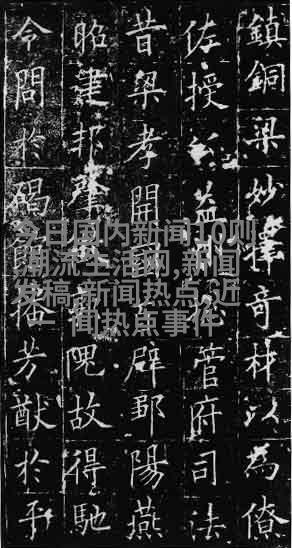 鎮銅梁妙擇奇材以為僚
佐授益州管府司法
昔梁孝開國首辟鄒陽燕
昭建邦肇隗故得馳
令問於碣館播芳猷於平
今日国内新闻10则
,潮流生活网,新闻
发稿,新闻热点,近
间热点事件